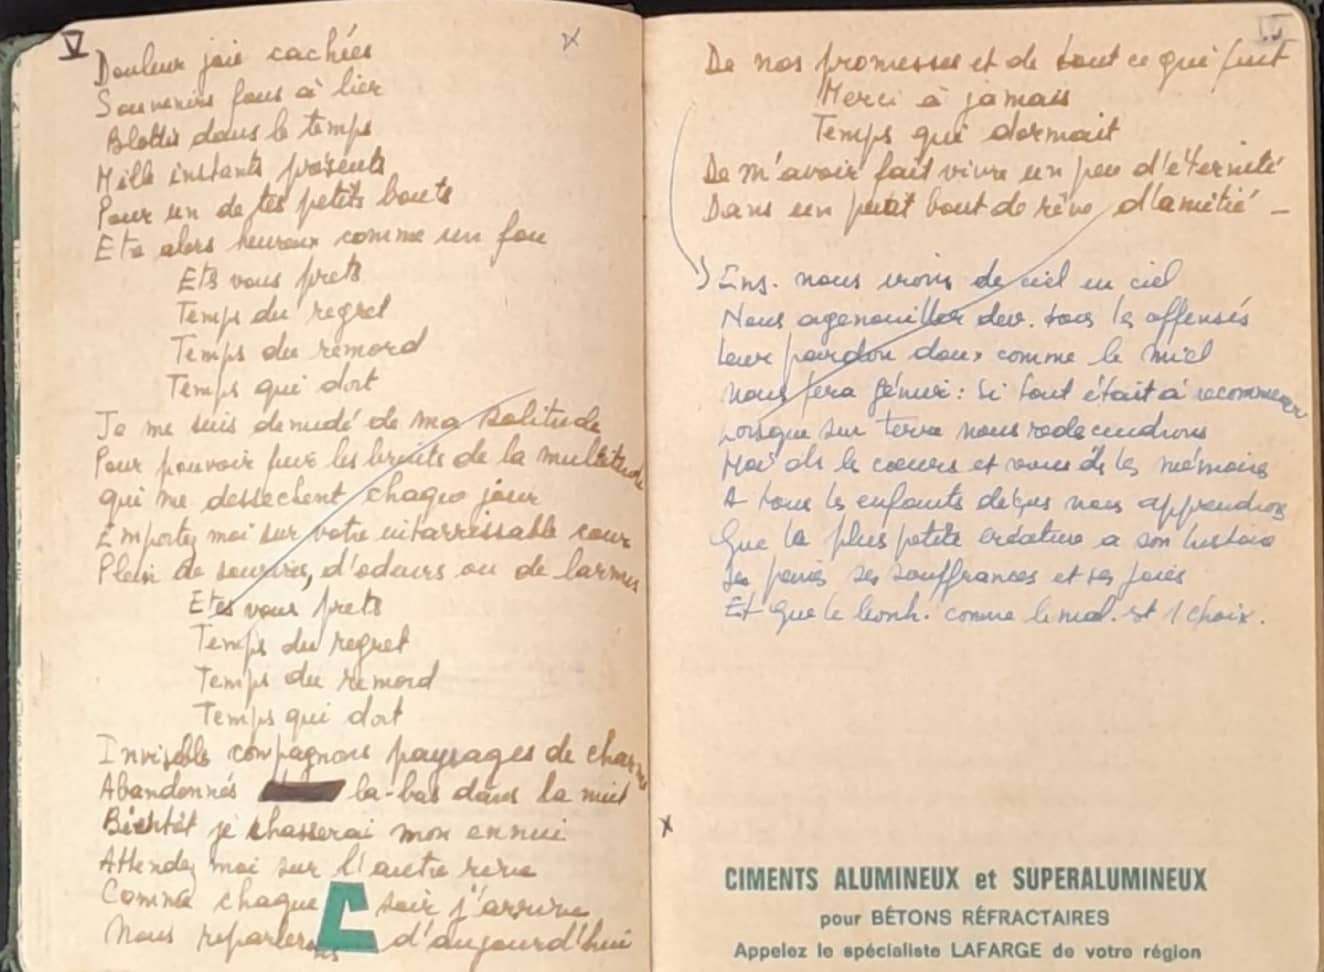 V
Douleur joie cachées
Souvenirs fous à lier
Blottis dans le temps
Mille instants présents
Pour un de tes petits bouts
Etre alors heureux comme un fou
Ets vous prets
Temps du regret
Temps du remord
Temps qui dort
Je me suis denudé de ma solitude
Pour pouvoir fuir les bruits de la multitude
qui me dessechent chaque jour
Emportez moi sur votre intarrissable cour
Plein de sourires, d'odeurs ou de larmes
Etes vous prets
Temps du regret
Temps du remord
Temps qui dort
Invisibles compagnons paysages de charmes
Abandonnés la-bas dans la nuit
Bientôt je chasserai mon ennui
Attendez moi sur l'autre rive
Comme chaque soir j'arrive
Nous reparlerons d'aujourd'hui
De nos promesses et de tout ce qui fuit
Merci à jamais
Temps qui dormait
De m'avoir fait vivre un peu d'éternité
Dans un petit bout de rêve d'amitié –
Ens. nous irons de ciel en ciel
Nous agenouiller dev. tous les offensés
Leur pardon doux comme le miel
Nous fera gémir : Si tout était à recommencer
Lorsque sur terre nous redescendrons
ds le coeurs et ds les mémoires
A tous les enfants déçus nous apprendrons
Que la plus petite créature a son histoire
Ses peines ses souffrances et ses joies
Et que le bonh. comme le mal. est 1 choix.
CIMENTS ALUMINEUX et SUPERALUMINEUX
pour BÉTONS RÉFRACTAIRES
Appelez le spécialiste LAFARGE de votre région